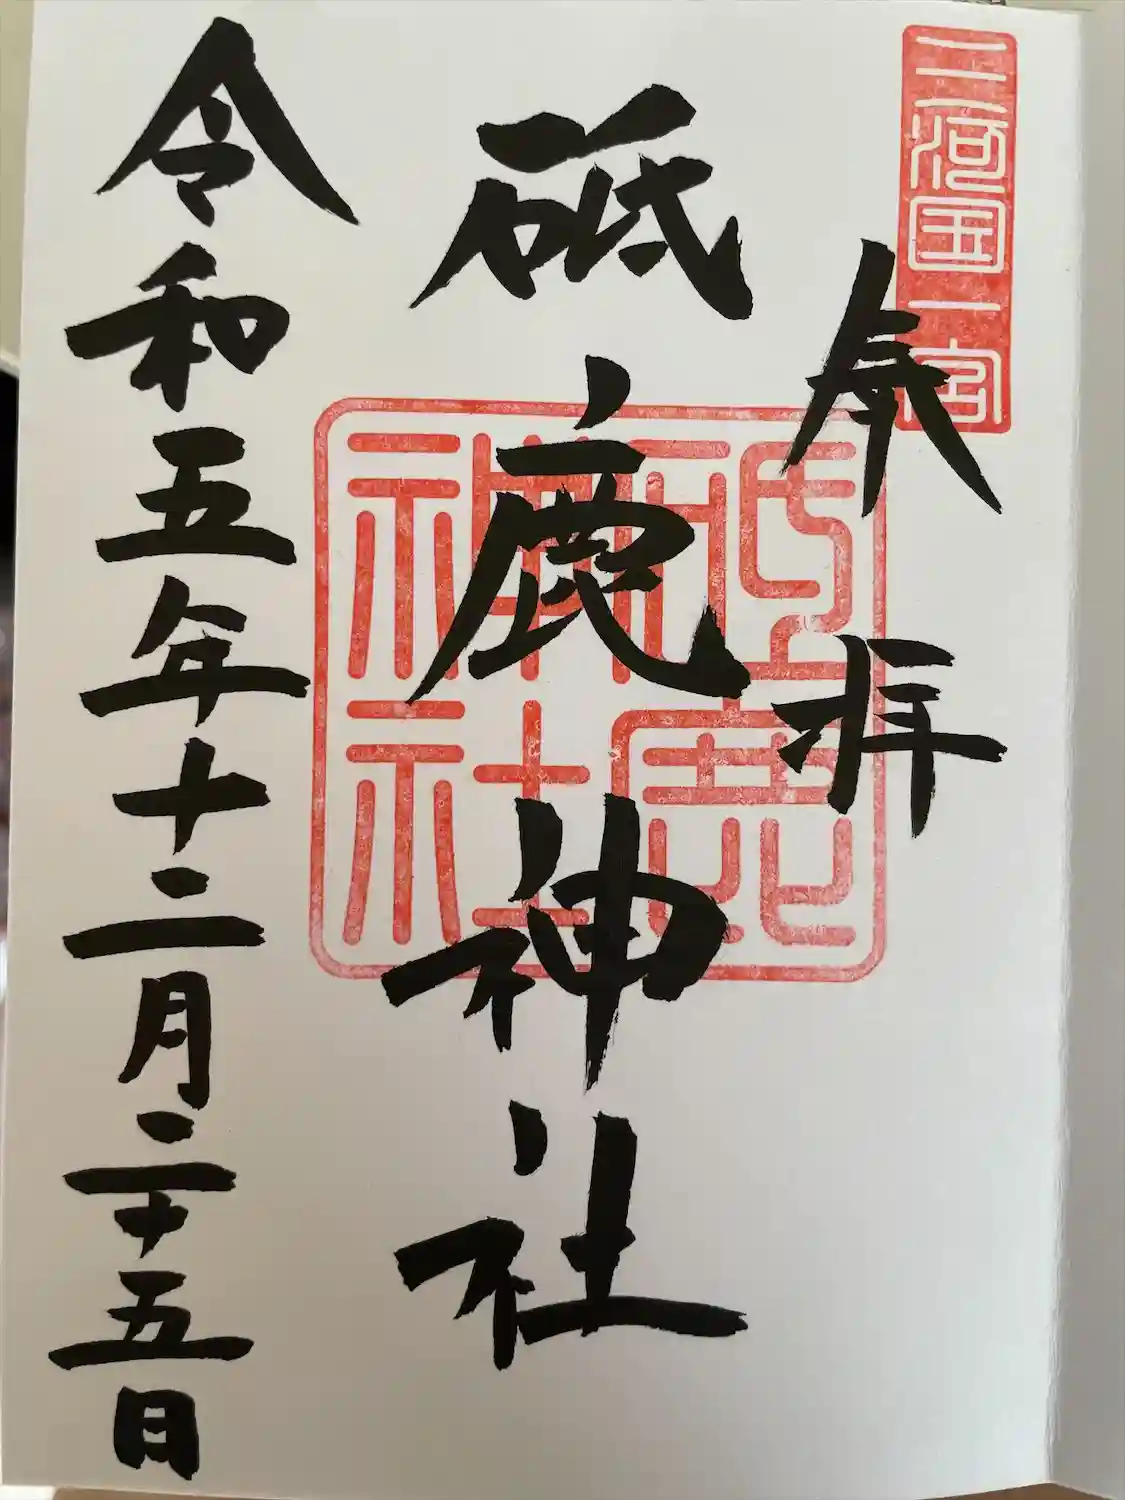 三河国一宮
奉拝
砥鹿神社
砥鹿
神社
令和五年十二月二十五日